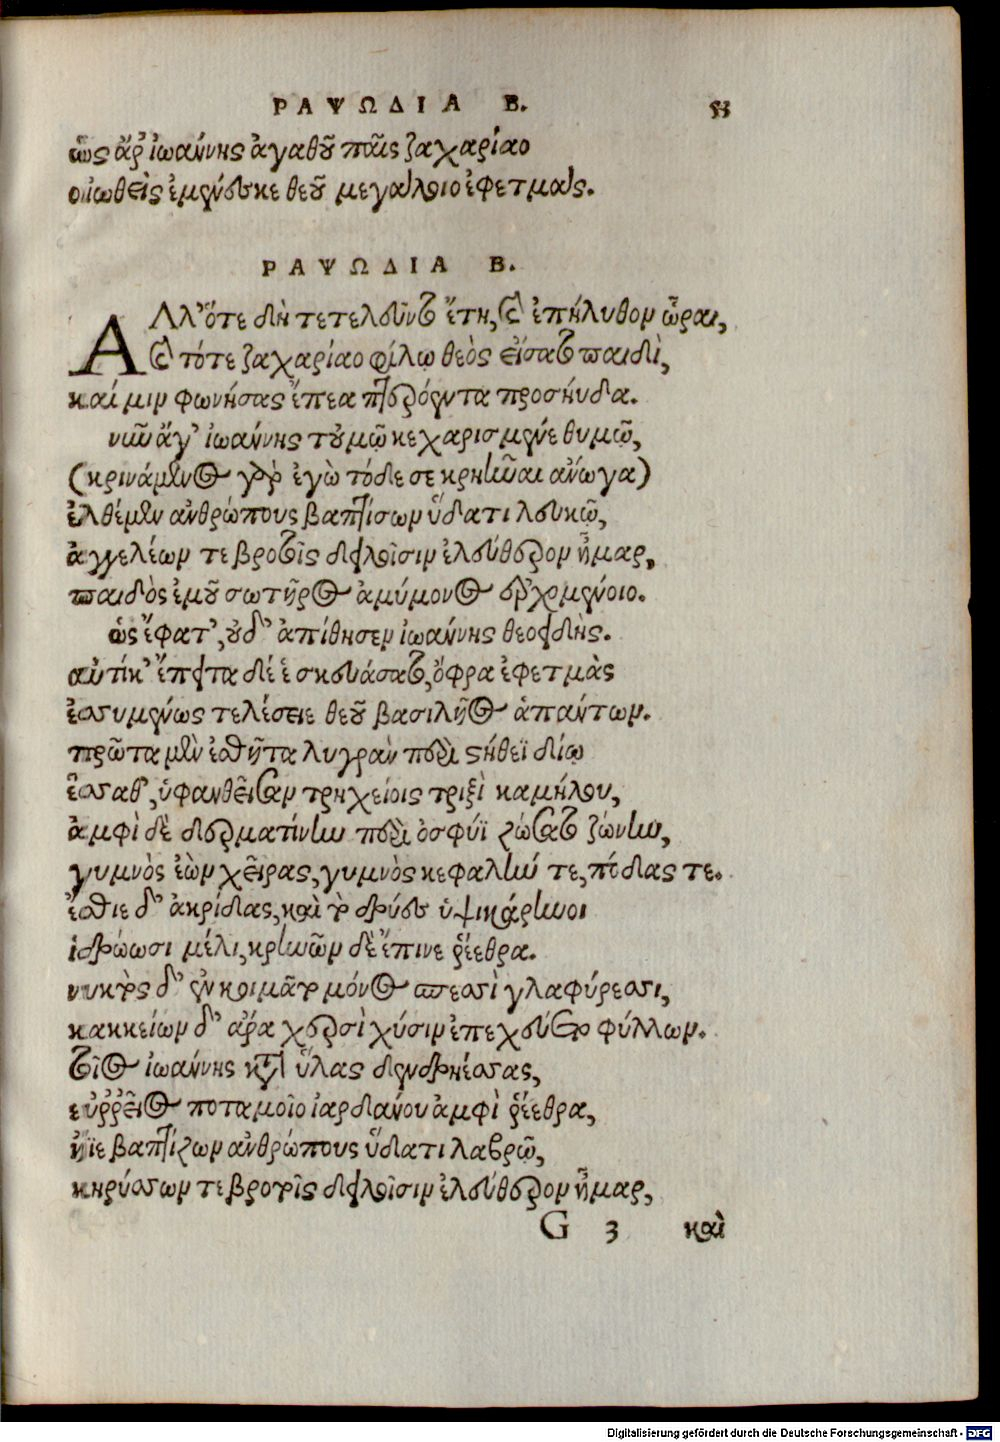 ΡΑΨΩΔΙΑ Β. 53
ὣς ἄρ ἰωάννης ἀγαθοῦ παῖς ζαχαρίαο
οἰωθεὶς ἐμίμνουσκε θεοῦ μεγάλοιο ἐφετμαῖς.
ΡΑΨΩΔΙΑ Β.
ΑΛλ' ὅτε δὴ τετελευῖντο ἔτη, καὶ ἐπήλυθον ὧραι,
καὶ τότε ζαχαρίαο φίλῳ θεὸς εἴσατο παιδὶ,
καί μιν φωνήσας ἔπεα πτερόεντα προσηύδα.
νῦν ἄγ' ἰωάννης τοὐμῷ κεχαρισμένε θυμῷ,
(κρινάμενος γὰρ ἐγὼ τόδε σε κρηῆναι ἄνωγα)
ἐλθέμεν ἀνθρώπους βαπτίσων ὕδατι λευκῷ,
ἀγγελέων τε βροτοῖς δειλοῖσιν ἐλεύθερον ἦμαρ,
παιδὸς ἐμοῦ σωτῆρος ἀμύμονος ἐρχομένοιο.
ὣς ἔφατ', οὐδ' ἀπίθησεν ἰωάννης θεοειδής.
αὐτίκ' ἔπειτα δέ ἑ σκευάσατο, ὄφρα ἐφετμὰς
ἐσσυμένως τελέσειε θεοῦ βασιλῆος ἁπάντων.
πρῶτα μὲν ἐσθῆτα λυγρὰν περὶ στήθεϊ δίῳ
ἕσσαθ', ὑφανθεῖσαν τρηχείοις τριξὶ καμήλου,
ἀμφὶ δὲ δερματίνην περὶ ὀσφύϊ ζώσατο ζώνην,
γυμνὸς ἐὼν χεῖρας, γυμνὸς κεφαλήν τε, πόδας τε.
ἔσθιε δ' ἀκρίδας, καὶ τὸ δένδρευ ὑψικάρηνοι
ἱδρώωσι μέλι, κρηνῶν δὲ ἔπινε ῥέεθρα.
νυκτὸς δ' ἐν κοιμᾶτο μόνος σπεσὶ γλαφύρεσσι,
κακκείων δ' ἄρα χερσὶ χύσιν ἐπεχεύατο φύλλων.
τοῖος ἰωάννης κατὰ ὕλας δενδρηέσσας,
εὐῤῥεῖος ποταμοῖο ἰαρδάνου ἀμφὶ ῥέεθρα,
ἤϊε βαπτίζων ἀνθρώπους ὕδατι λαβρῷ,
κηρύσσων τε βροτοῖς δειλοῖσιν ἐλεύθερον ἦμαρ,
G 3 καὶ
Digitalisierung gefördert durch die Deutsche Forschungsgemeinschaft - DFG